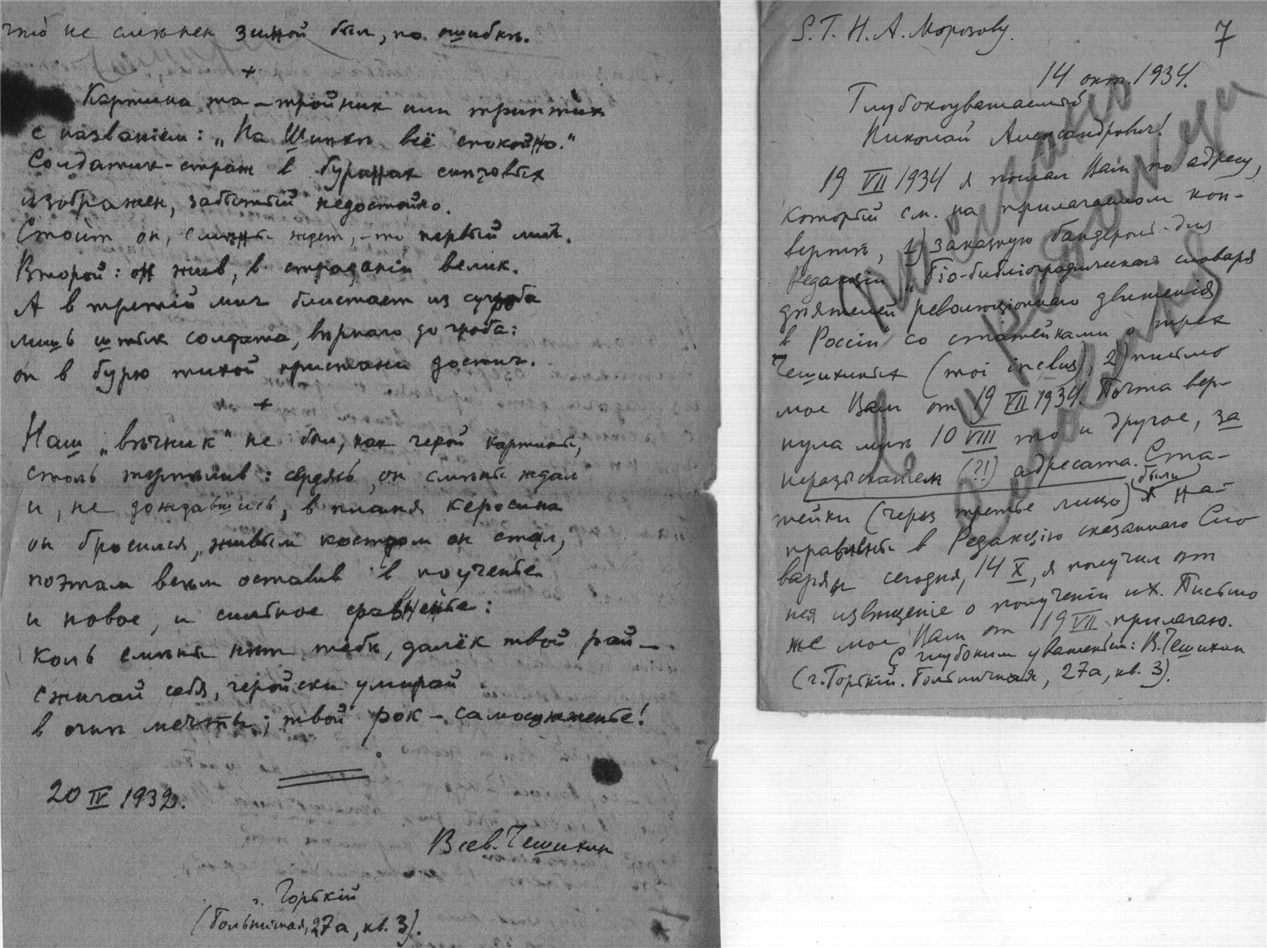 что не сменен зимой был, по ошибкѣ.
+
Картина та – тройник или триптих
с названіем: „На Шипкѣ всё спокойно.“
Солдатик-страж в буранах снѣговых
изображен, забытый недостойно.
Стоит он, смѣны ждет, – то первый миг.
Второй: он жив, в страданіи велик.
А в третій миг блистает из сугроба
лишь штык солдата, вѣрнаго до гроба:
он в бурю тихой пристани достиг.
+
Наш „вѣчник“ не был, как герой картины,
столь терпѣлив: сердясь, он смѣны ждал
и, не дождавшись, в пламя керосина
он бросился, живым костром он стал,
поэтам всѣм оставив в поученье
и новое, и сильное сравненье:
коль смѣны нѣт тебѣ, далёк твой рай –
сжигай себя, геройски умирай
в огнѣ мечты; твой рок – самосожженье!
20 IV 1932.
Всев. Чешихин
г. Горькій
(Больничная, 27а, кв. 3).
S. T. Н. А. Морозову.
7
14 окт. 1934.
Глубокоуважаемый
Николай Александрович!
19 VII 1934 я послал Вам по адресу,
который см. на прилагаемом кон-
вертѣ, 1) заказную бандероль для
Редакціи „Біо-библіографическаго словаря
дѣятелей революціоннаго движенія
в Россіи“ со статейками о трех
Чешихиных (moi inclus), 2) письмо
мое Вам от 19 VII 1934. Почта вер-
нула мнѣ 10 VIII то и другое, за
неразысканіем (?!) адресата. Ста-
тейки (через третье лицо) были на-
правлены в Редакцію сказаннаго Сло
варя, и сегодня, 14 X, я получил от
нея извѣщеніе о полученіи их. Письмо
же мое Вам от 19 VII прилагаю.
С глубоким уваженіем: В. Чешихин
(г. Горькій. Больничная, 27а, кв. 3).